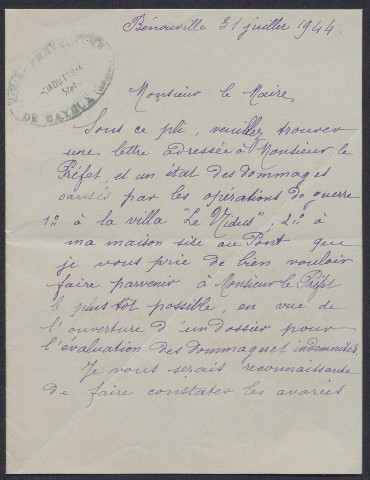 Bénouville 31 juillet 1944.
AOUT 1944
DE BAYEUX
Monsieur le Maire,
Sous ce pli, veuillez trouver
une lettre adressée à Monsieur le
Préfet, et un état des dommages
causés par les opérations de guerre
1º à la villa "Le Nidus", 2º à
ma maison sise au Pont que
je vous prie de bien vouloir
faire parvenir à Monsieur le Préfet
le plus tôt possible, en vue de
l'ouverture d'un dossier pour
l'évaluation des dommages et indemnités.
Je vous serais reconnaissante
de faire constater les avaries